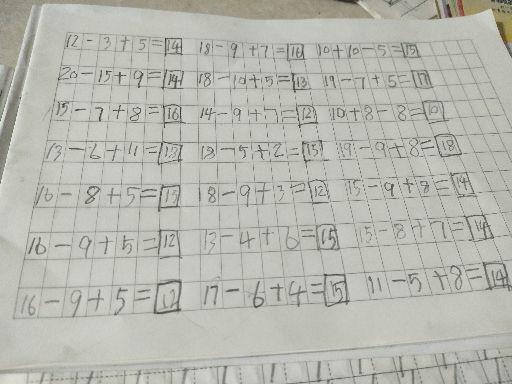 12-3+5=14 18-9+7=16 10+10-5=15
20-15+9=14 18-10+5=13 19-7+5=17
15-7+8=16 14-9+7=12 10+8-8=10
13-6+11=18 18-5+2=15 19-9+8=18
16-8+5=13 18-9+3=12 15-9+8=14
16-9+5=12 13-4+6=15 15-8+7=14
16-9+5=12 17-6+4=15 11-5+8=14